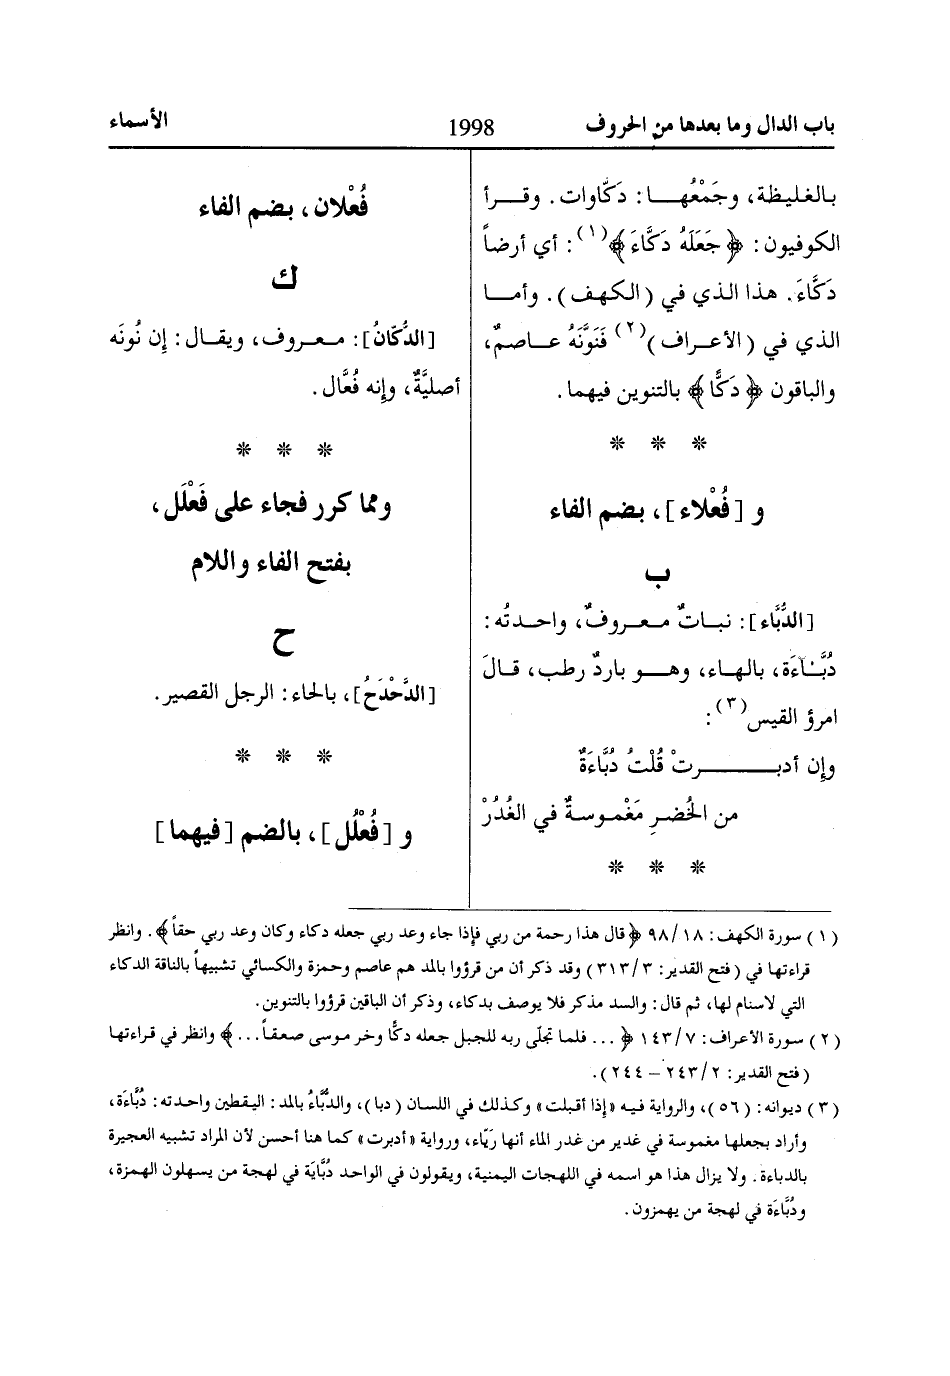 باب الدال وما بعدها من الحروف
1998
الأسماء
بالغليظة، وجَمْعُهـــا: دَكّاوات. وقــرأ
الكوفيون: ﴿جَعَلَهُ دَكَّاءَ﴾(١): أي أرضاً
دَكَّاءَ. هذا الذي في (الكهف). وأمــا
الذي في (الأعـراف)(٢) فَنَوَّنَهُ عـاصمٌ،
والباقون ﴿دَكًّا﴾ بالتنوين فيهما.
* * *
و [فُعْلاء]، بضم الفاء
ب
[الدُّبَّاء]: نبــاتٌ معـروفٌ، واحـدتُه:
دُبَّــاءَة، بالهـاء، وهــو باردٌ رطب، قـالَ
امرؤ القيس(٣):
وإن أدبــــــرتْ قُلْتُ دُبَّاءَةٌ
من الخُضرِ مَغْموسـةٌ في الغُدُرْ
* * *
فُعْلان، بضم الفاء
ك
[الدُّكّانُ]: معـروف، ويقـال: إن نُونَه
أصليَّةٌ، وإنه فُعَّال.
* * *
ومما كرر فجاء على فَعْلَل،
بفتح الفاء واللام
ح
[الدَّحْدَحُ]، بالحاء: الرجل القصير.
* * *
و [فُعْلُل]، بالضم [فيهما]
(١) سورة الكهف: ٩٨/١٨ ﴿قال هذا رحمة من ربي فإذا جاء وعد ربي جعله دكاء وكان وعد ربي حقاً﴾. وانظر
قراءتها في (فتح القدير: ٣١٣/٣) وقد ذكر أن من قرؤوا بالمد هم عاصم وحمزة والكسائي تشبيهاً بالناقة الدكاء
التي لاسنام لها، ثم قال: والسد مذكر فلا يوصف بدكاء، وذكر أن الباقين قرؤوا بالتنوين.
(٢) سورة الأعراف: ١٤٣/٧ ﴿... فلما تجلّى ربه للجبل جعله دكًّا وخر موسى صعقاً...﴾ وانظر في قراءتها
(فتح القدير: ٢٤٣/٢ – ٢٤٤).
(٣) ديوانه: (٥٦)، والرواية فيه «إذا أقبلت» وكذلك في اللسان (دبا)، والدُّبَّاءُ بالمد: اليقطين واحدته: دُبَّاءَة،
وأراد بجعلها مغموسة في غدير من غدر الماء أنها ريّاء، ورواية «أدبرت» كما هنا أحسن لأن المراد تشبيه العجيرة
بالدباءة. ولا يزال هذا هو اسمه في اللهجات اليمنية، ويقولون في الواحد دُبَّايَة في لهجة من يسهلون الهمزة،
ودُبَّاءَة في لهجة من يهمزون.